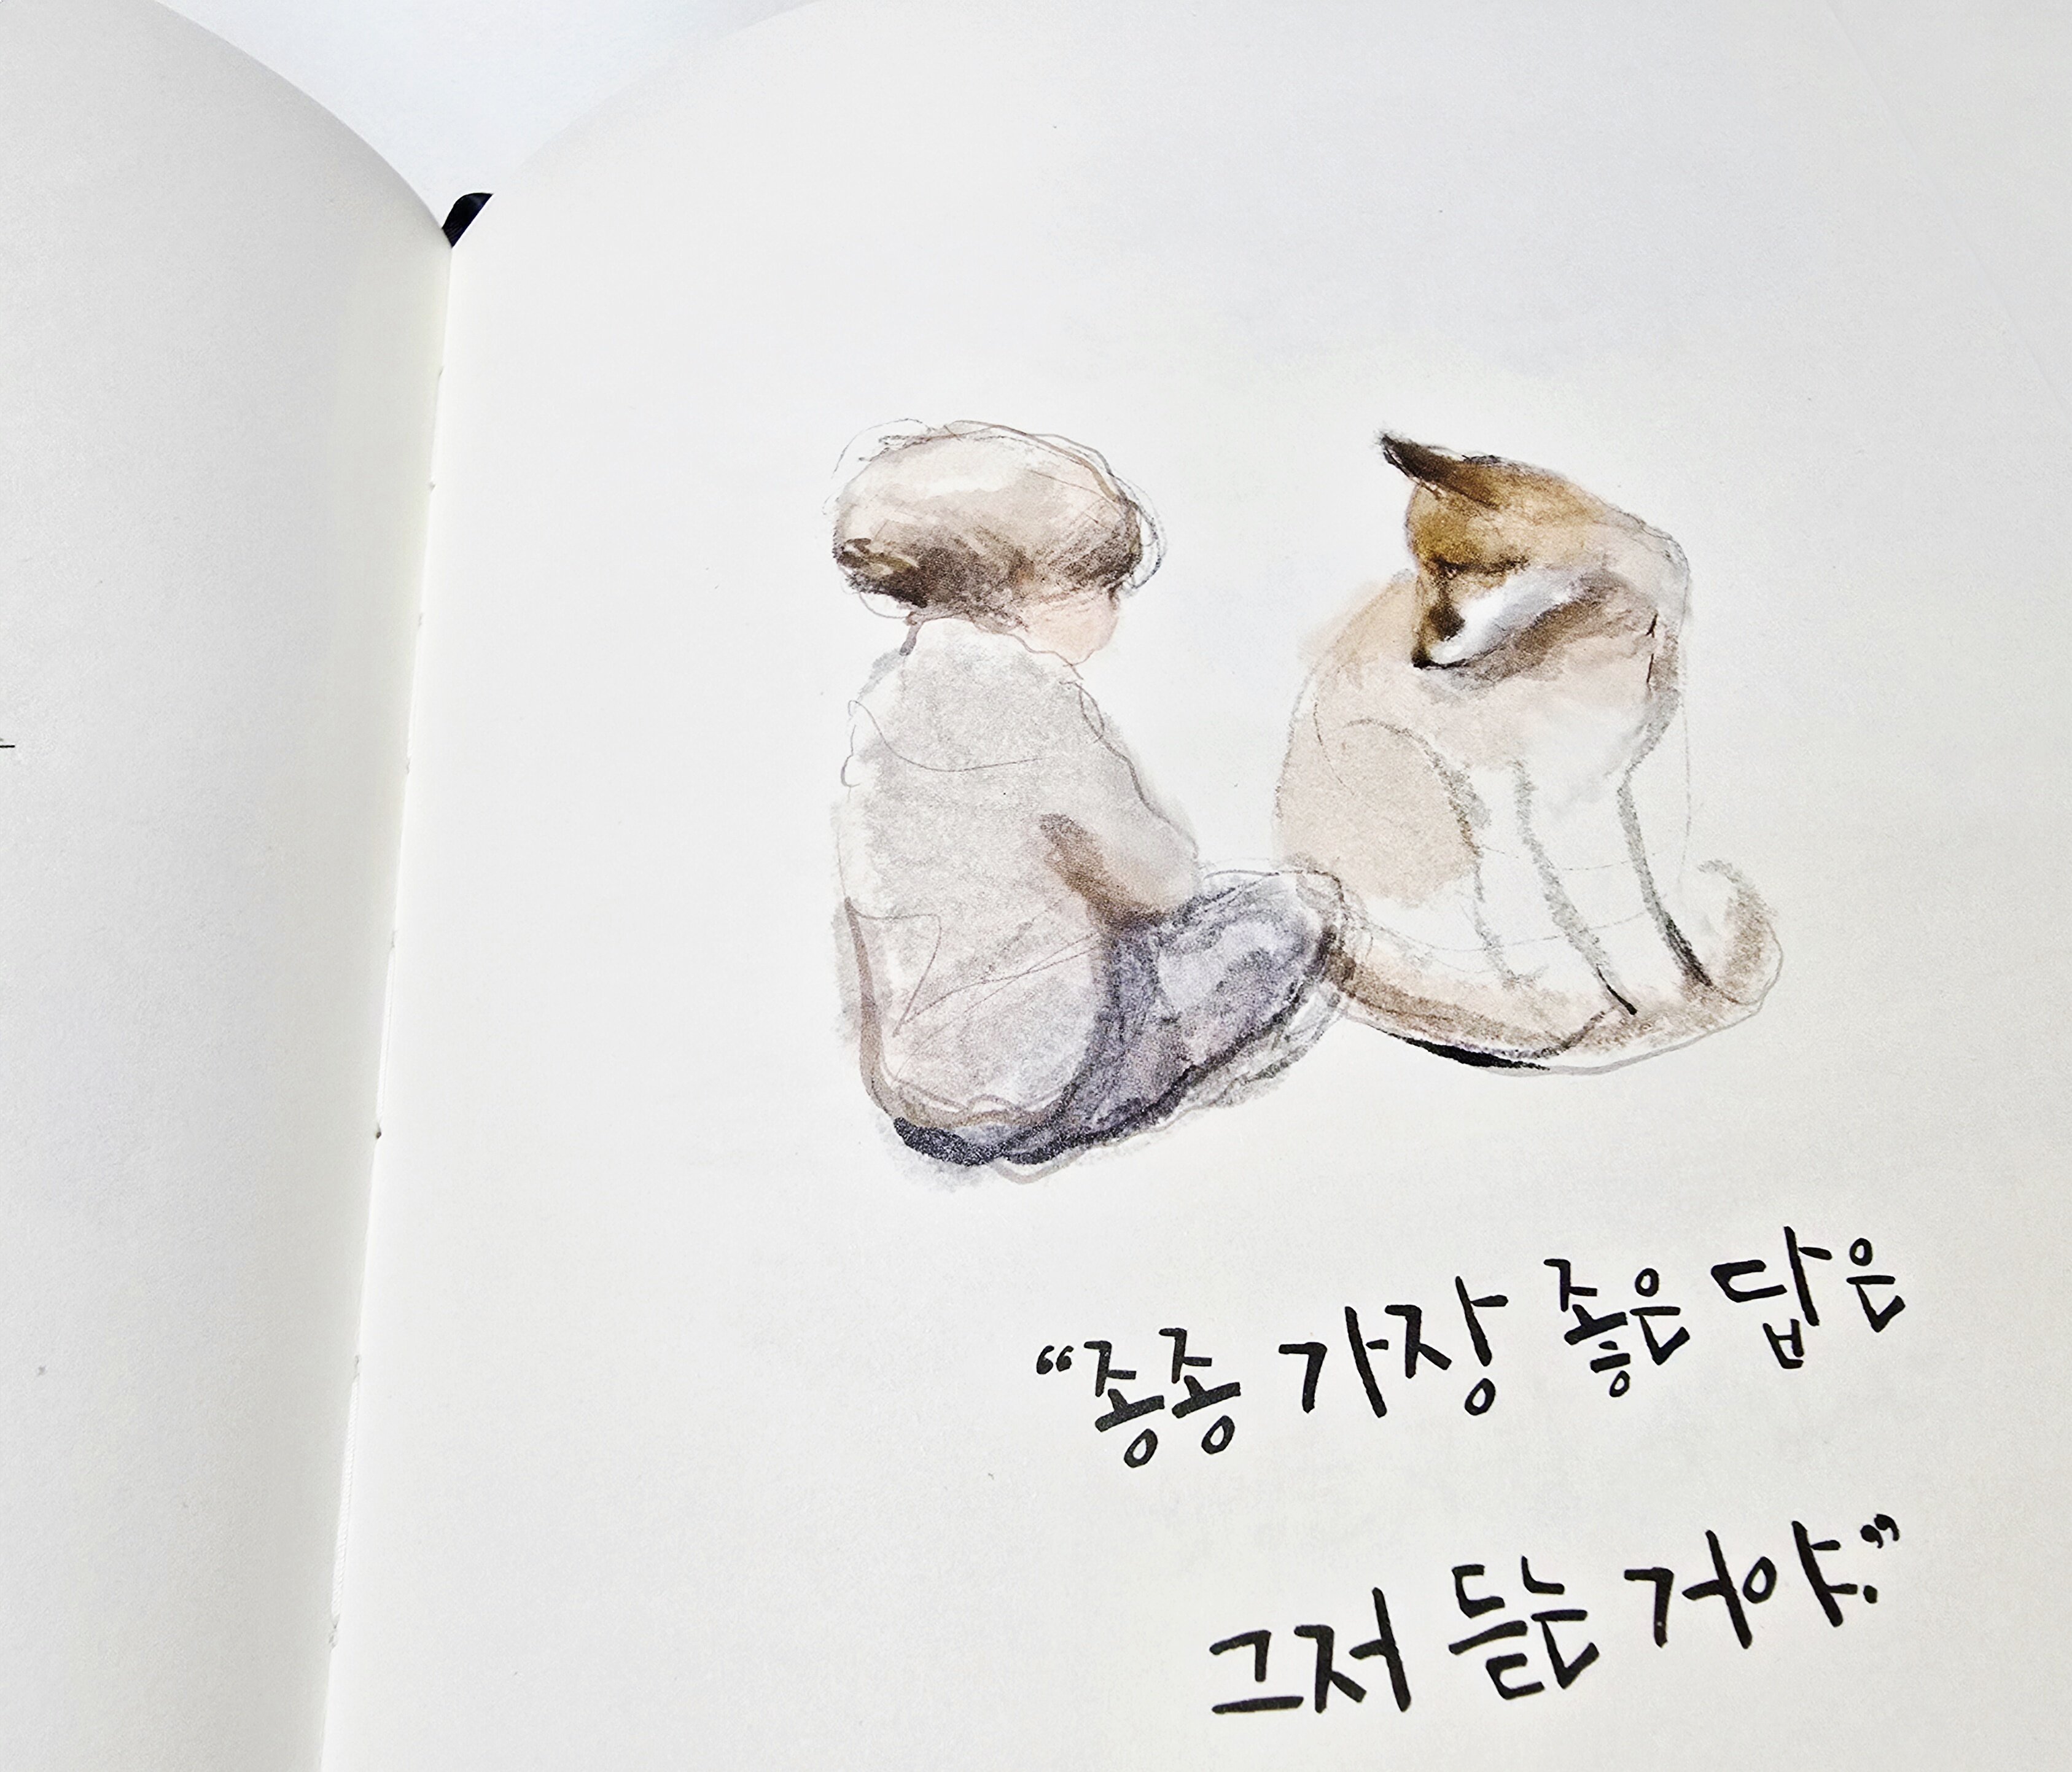 “종종 가장 좋은 답은
그저 듣는 거야.”